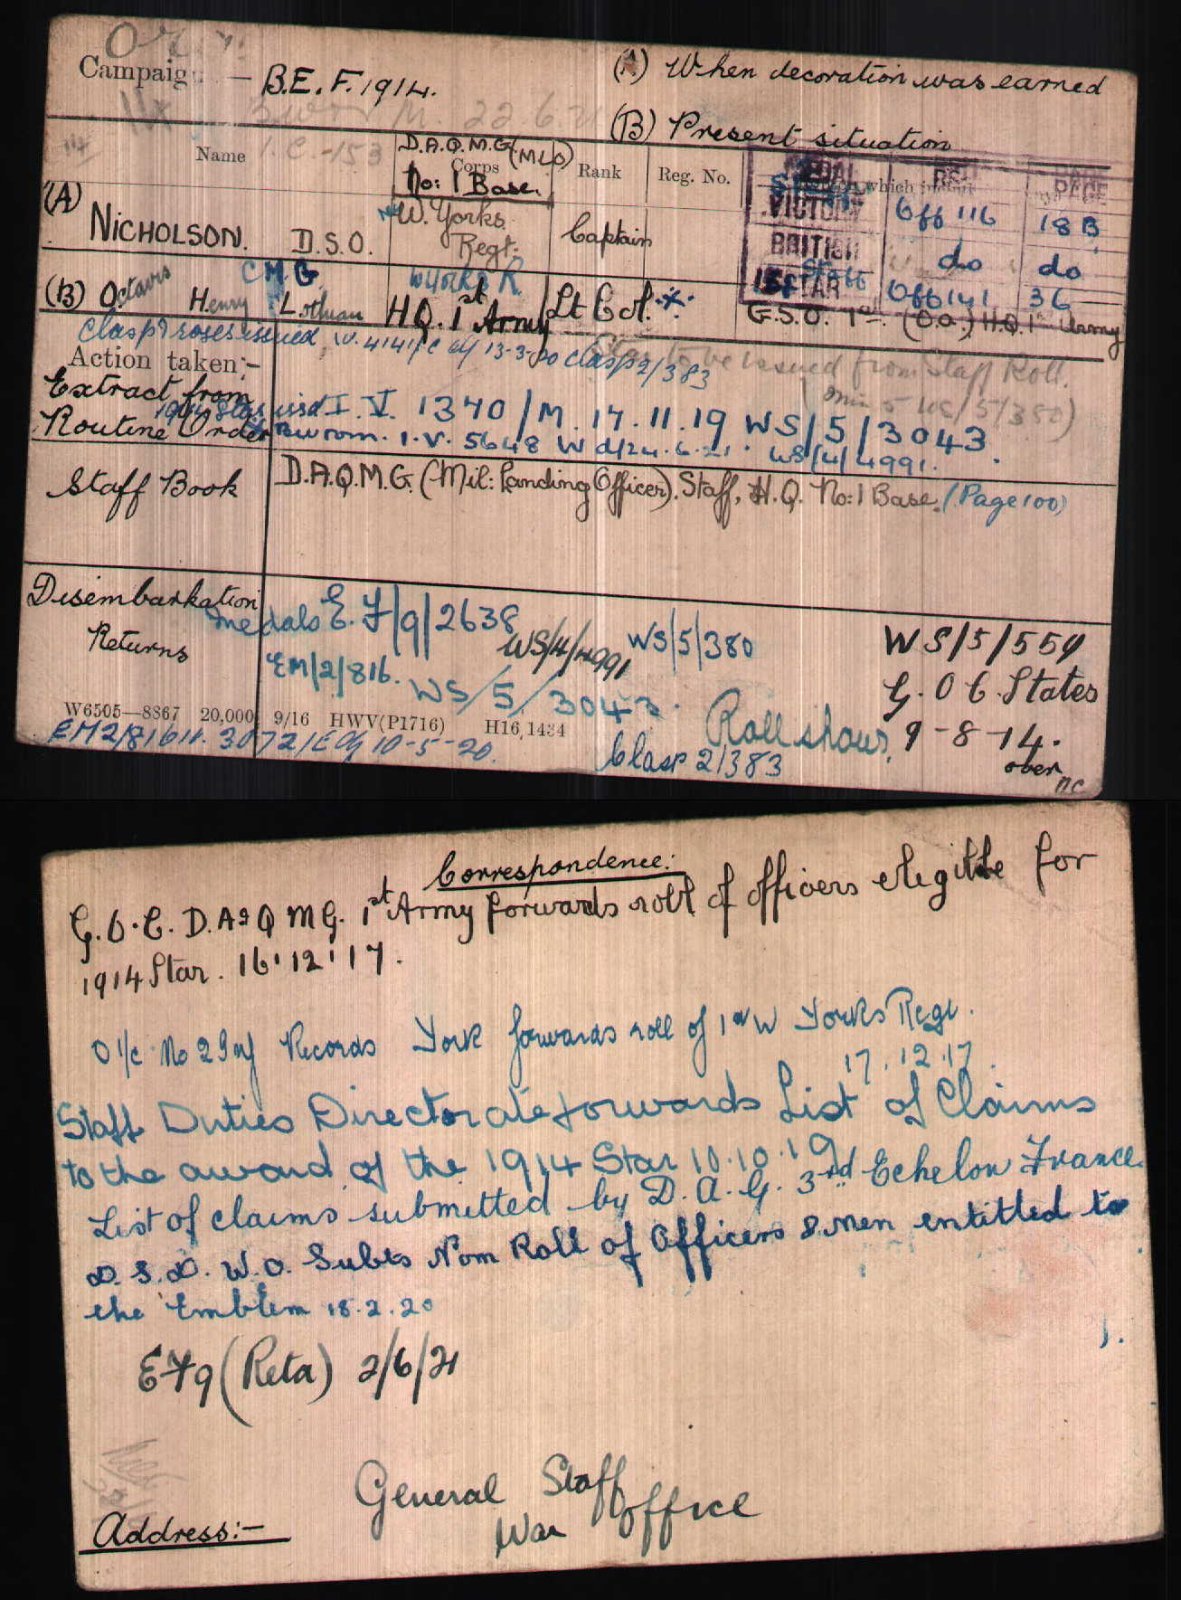 Campaign — B.E.F. 1914.
(A) When decoration was earned
(B) Present situation
22.6.21
Name I.C.-153
D.A.Q.M.G (MLO)
Corps
No: 1 Base.
Rank
Reg. No.
MEDAL
PAGE
(A)
NICHOLSON. D.S.O.
W. Yorks
Regt.
Captain
VICTORY Off 116 18 B
BRITISH do do
STAR Off 141 36
(B) Octavis Henry Lothian
C M G
W York R.
H.Q. 1st Army
Lt Col. *
G.S.O. 1st. (O.a.) H.Q. 1st Army
Clasp & roses issued IV. 4141/C 13-3-20 Clasp 2/383
to be issued from Staff Roll.
(min 5 WS/5/380)
Action taken:-
Extract from
Routine Order
1914 Star issd I.V. 1370/M. 17.11.19 WS/5/3043.
I.V. 5648 W d/24.6.21. WS/4/4991.
Staff Book
D.A.Q.M.G. (Mil: Landing Officer). Staff, H.Q. No: 1 Base. (Page 100)
Disembarkation
Returns
medals E.F/9/2638
WS/4/4991
WS/5/380
WS/5/559
EM/2/816.
WS/5/3043.
G.O.C. States
Roll shows 9-8-14.
over
W6505—8867 20,000 9/16 HWV(P1716) H16,1434
10-5-20.
Clasp 2/383
Correspondence:
G.O.C. D.A&QMG. 1st Army forwards roll of officers eligible for
1914 Star. 16.12.17.
O i/c No 2 Records York forwards roll of W Yorks Regt.
17.12.17.
Staff Duties Directorate forwards List of Claims
to the award of the 1914 Star 10.10.19
List of claims submitted by D.A.G. 3rd Echelon France.
D.S.D. W.O. Subts Nom Roll of Officers & Men entitled to
the Emblem 18.2.20
EF9 (Reta) 2/6/21
General Staff
War Office
Address:-